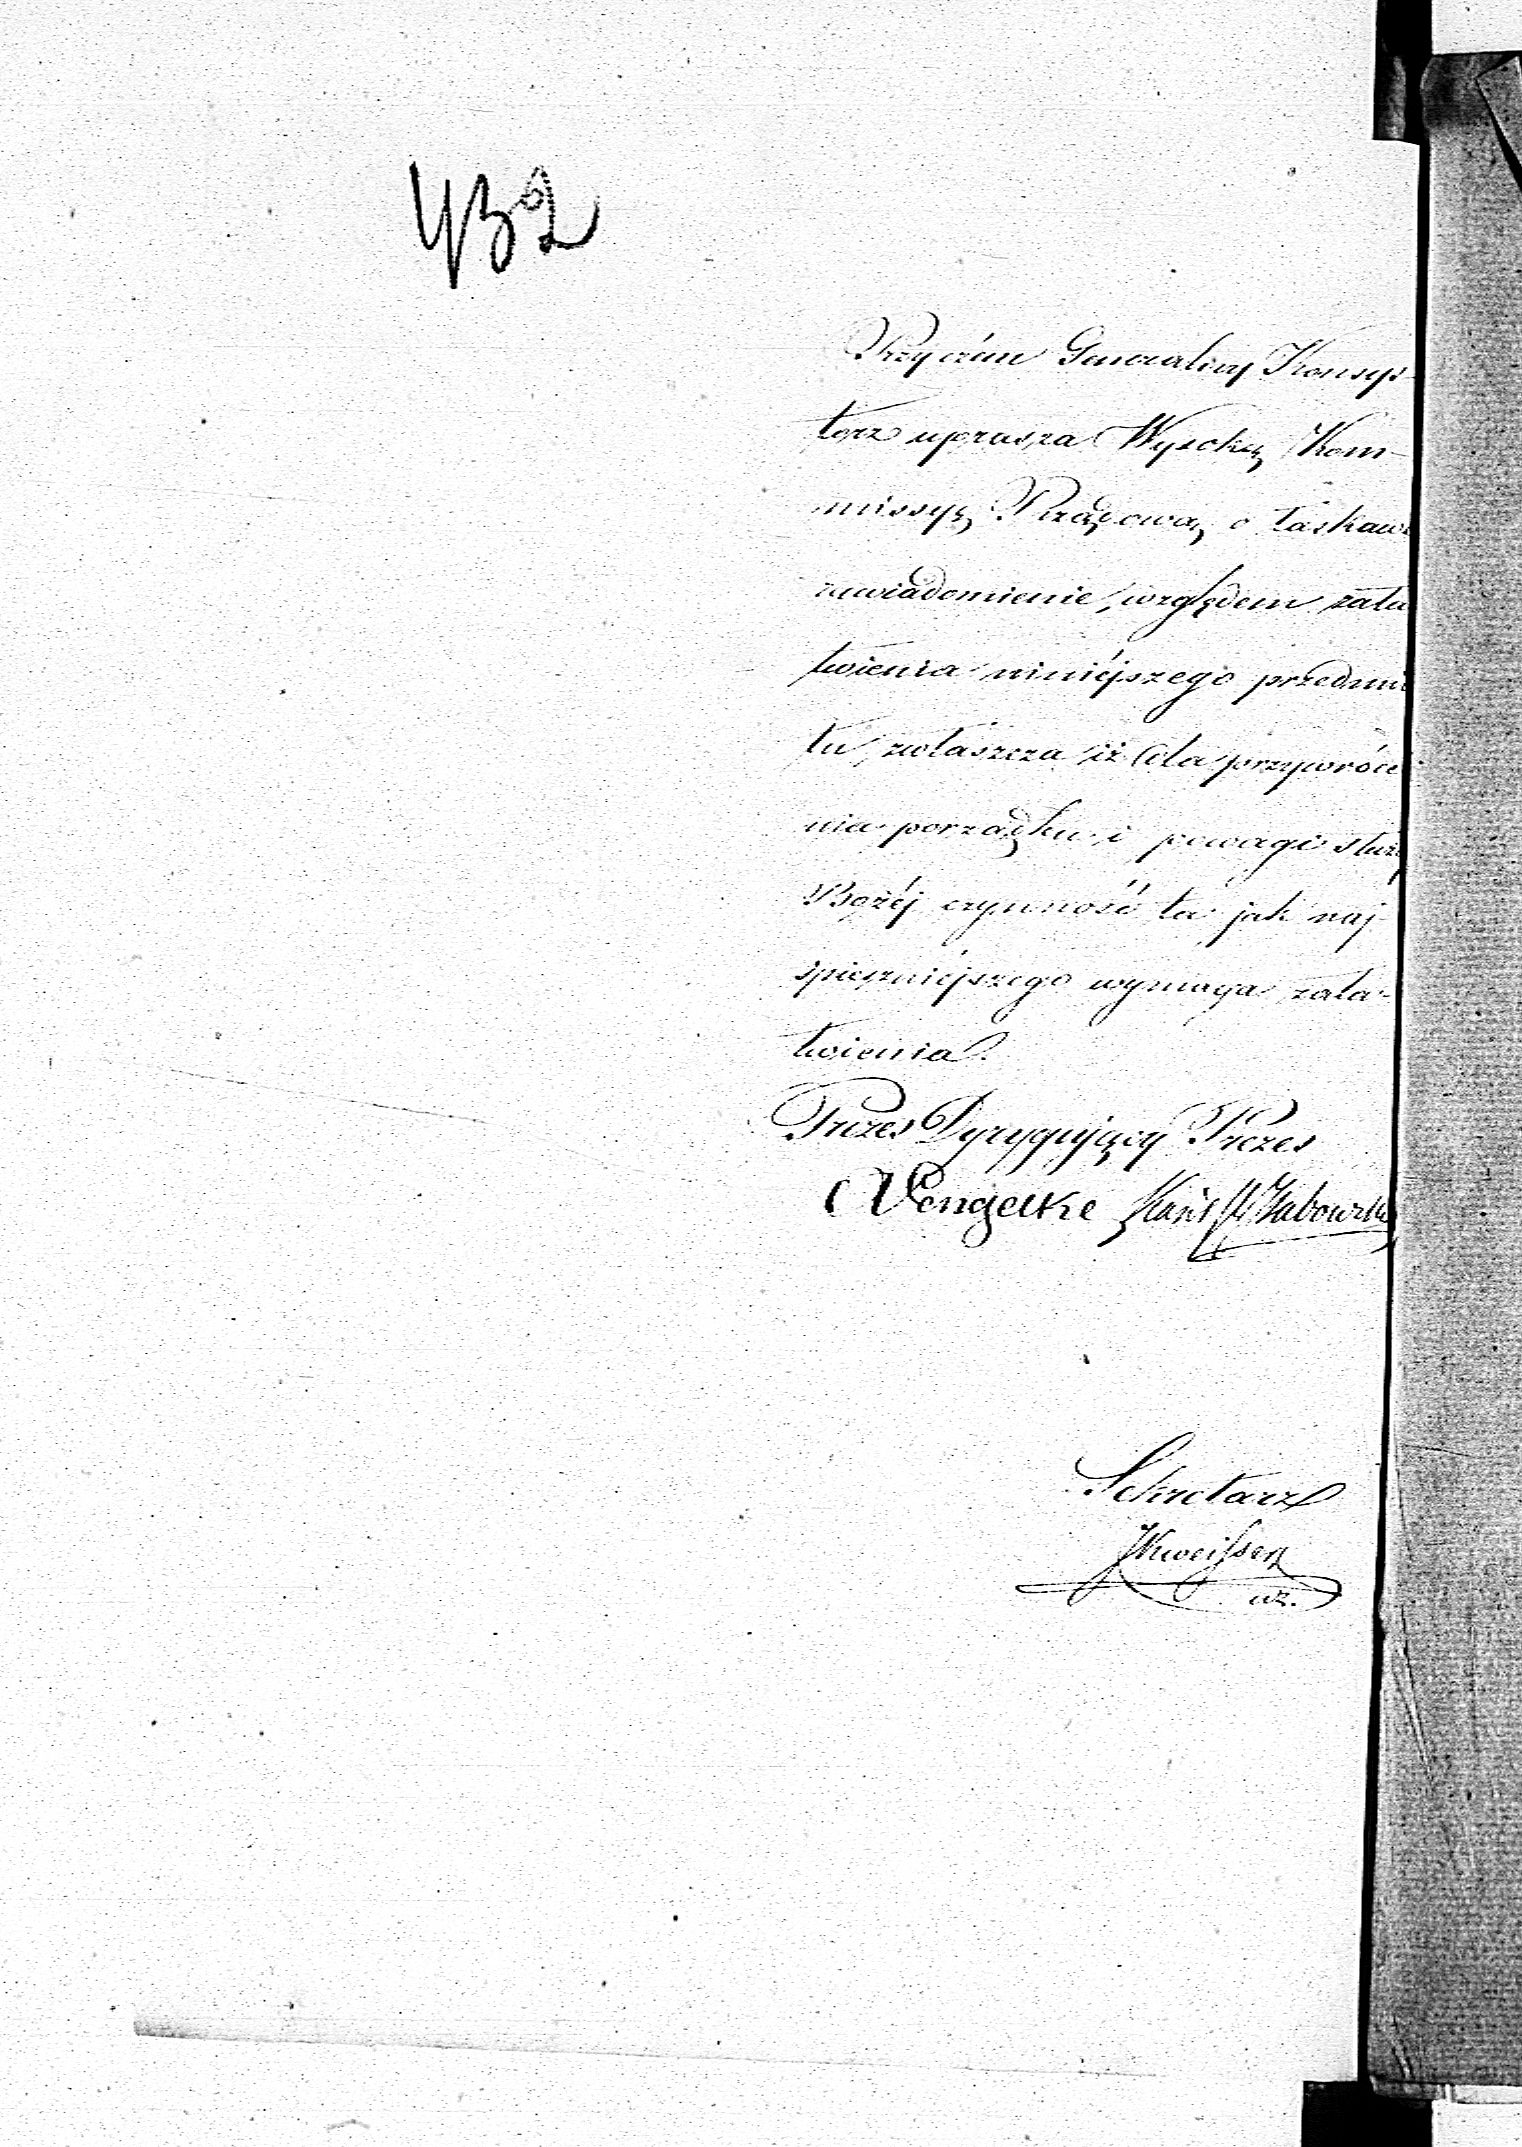 432
Przyczém Generalny Konsys-
torz uprasza Wysoką Kom-
missyę Rządową o łaskawe
zawiadomienie, względem zała
twienia niniéjszego przedmio
tu, zwłaszcza iż dla przywróce
nia porządku i powagi służ
Bożéj czynność ta jak naj
spieszniéjszego wymaga zała-
twienia.
Prezes Dyrygujący Prezes
Sekretarz
wz.